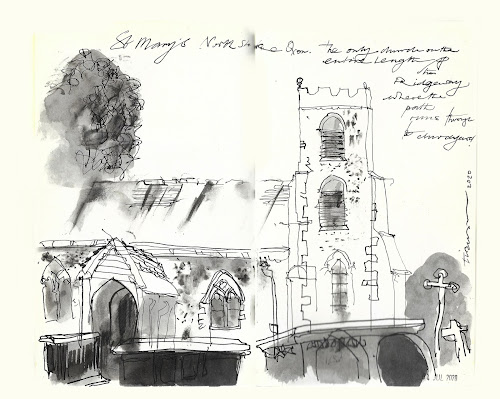 St Mary's North Stoke Oxon. The only church on the
entire length of
the
Ridgeway
where the
path
runs through
the churchyard
2020
JUL 2020